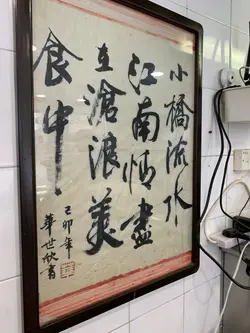 小橋流水
江南情盡
在滄浪美
食中
己卯年
華世欣書